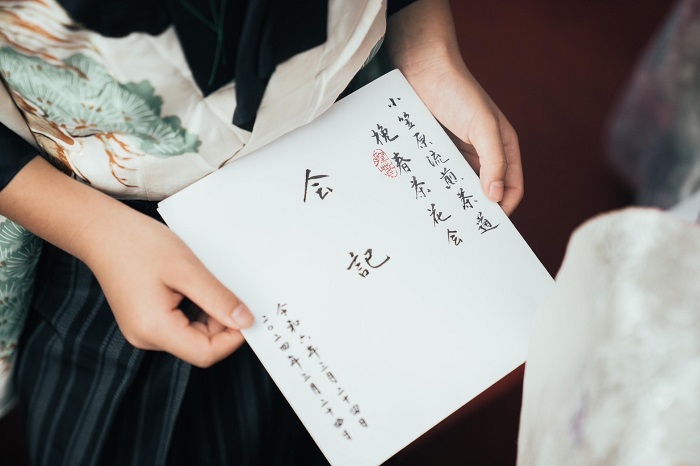 小笠原流煎茶道
挽春茶花会
会記
令和六年三月二十四日
二〇二四年三月二十四日